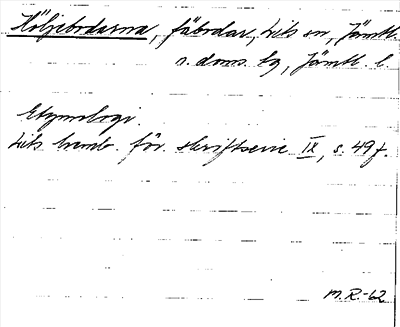 Höljebodarna, fäbodar, Lits sn, Jämtl.
n. doms. tg, Jämtl. l.
Etymologi.
Lits hemb. för. skriftserie IX, s. 49 f.
M.R.-62